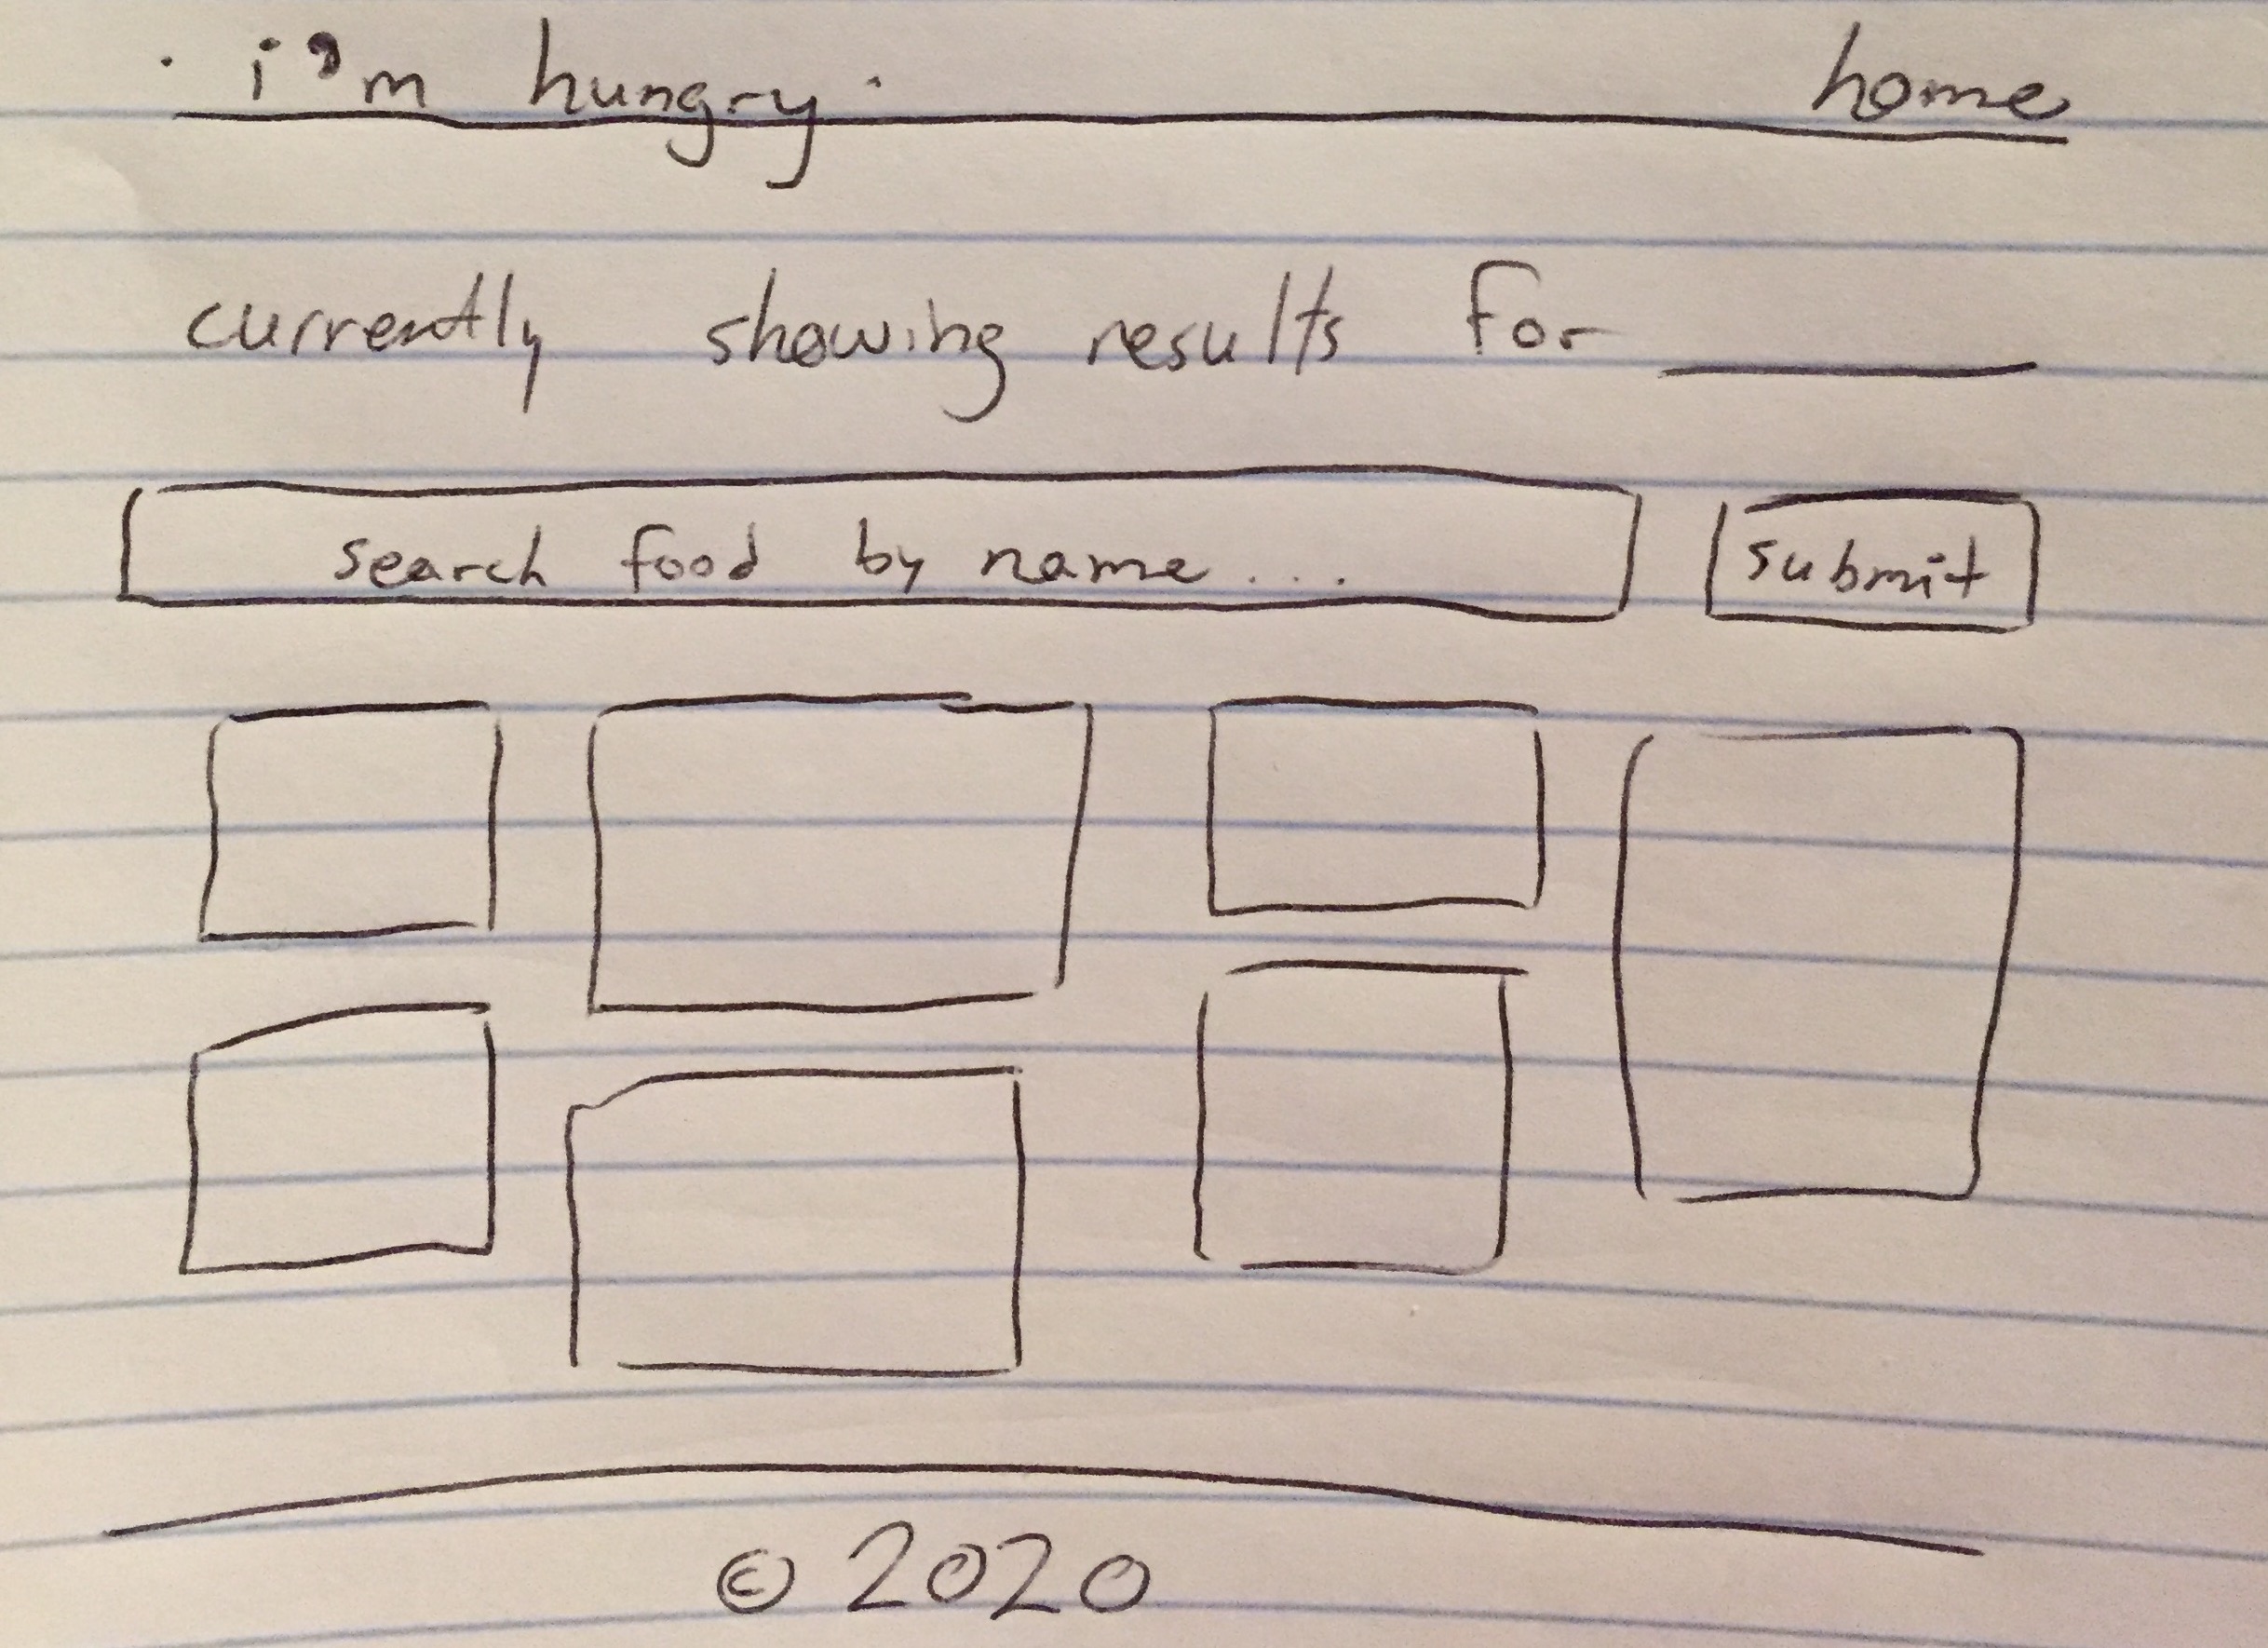 · i'm hungry · home
currently showing results for ______
search food by name... submit
© 2020